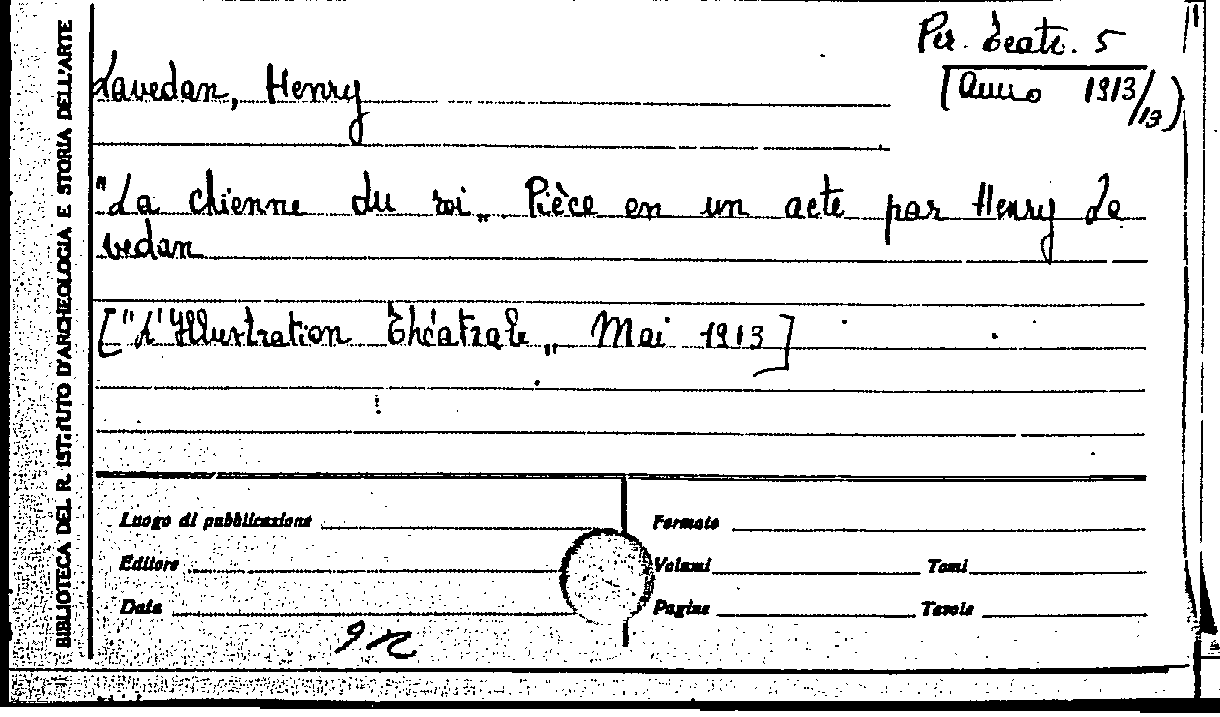 Per. Teatr. 5
(Anno 1913/13)
Lavedan, Henry
"La chienne du roi„ Pièce en un acte par Henry La
vedan
["L'Illustration Théatrale„ Mai 1913]
BIBLIOTECA DEL R. ISTITUTO D'ARCHEOLOGIA E STORIA DELL'ARTE
Luogo di pubblicazione
Formato
Editore
Volumi Tomi
Data
Pagine Tavole